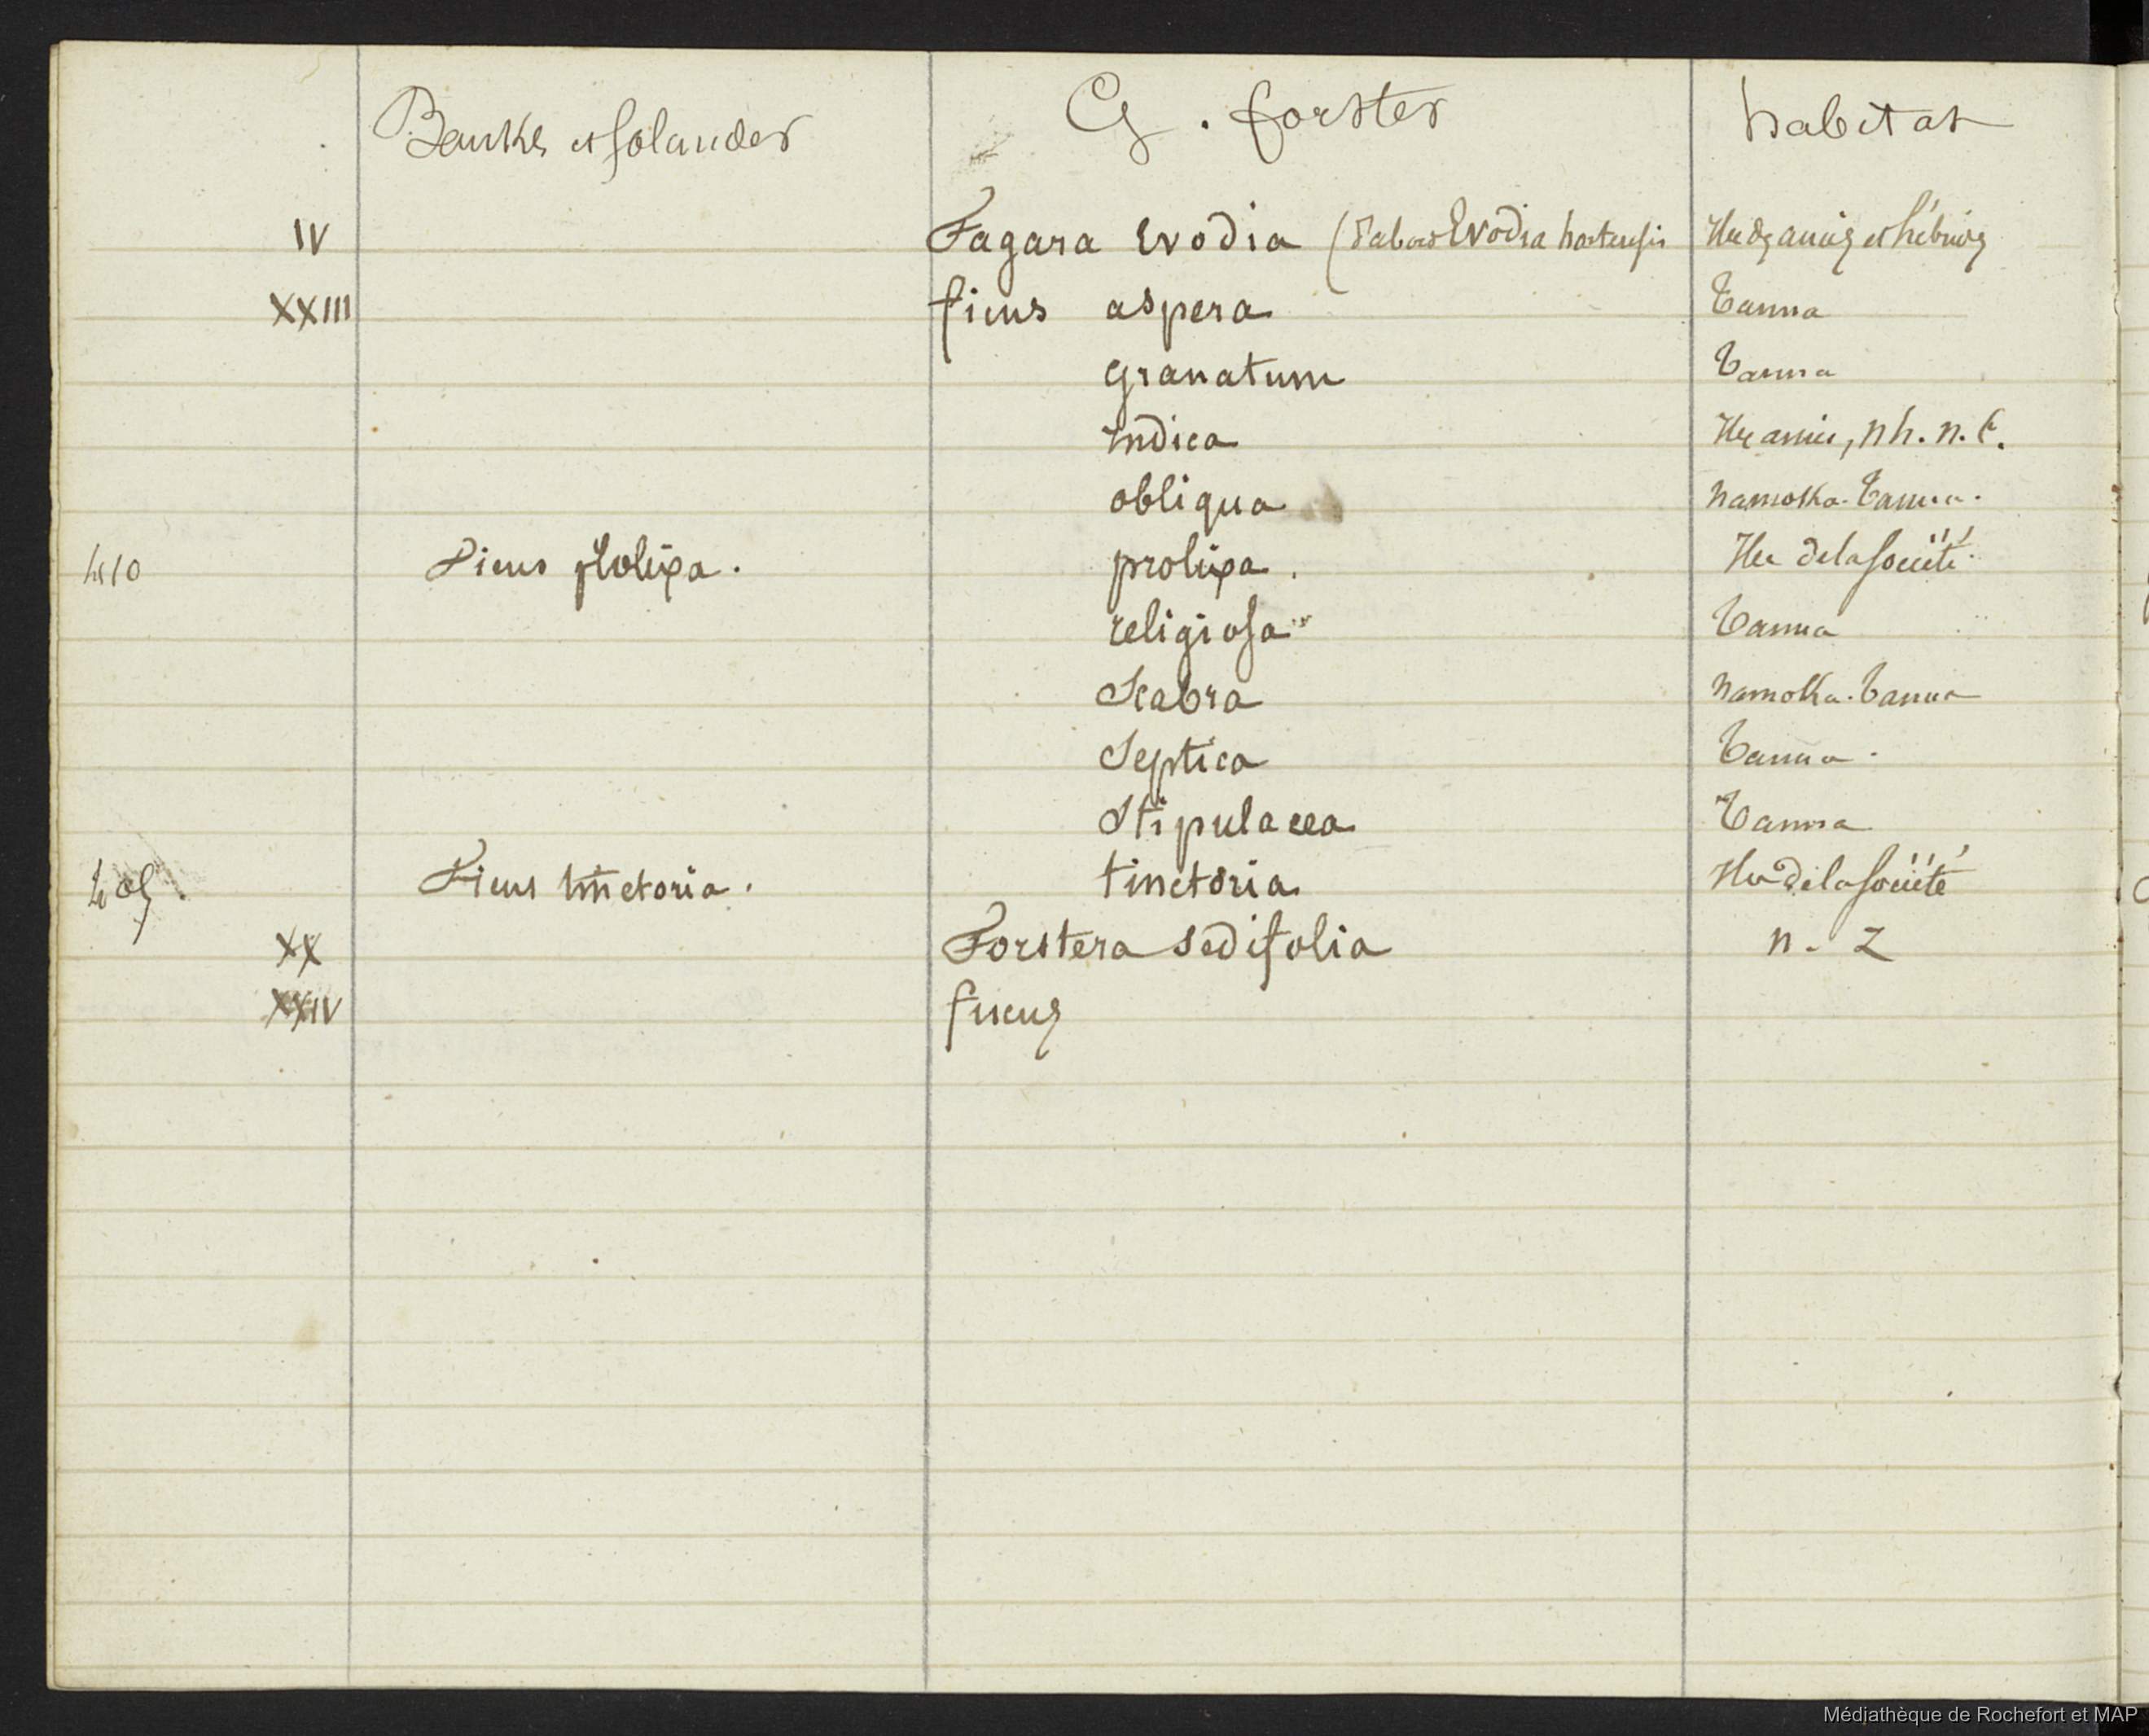 Banks et Solander G. forster habitat
IV Fagara Evodia (d'abord Evodia hortensis Iles des amis et hébrides
XXIII ficus aspera Tanna
granatum Tanna
indica Iles amies, nh. n. C.
obliqua namoka. Tanna.
Ficus prolixa. prolixa. Iles de la Société
religiosa Tanna
Scabra namoka. Tanna
Septica Tanna.
Stipulacea Tanna
Ficus tinctoria. tinctoria Iles de la Société
XX Forstera sedifolia n. Z
XXIV fucus
Médiathèque de Rochefort et MAP